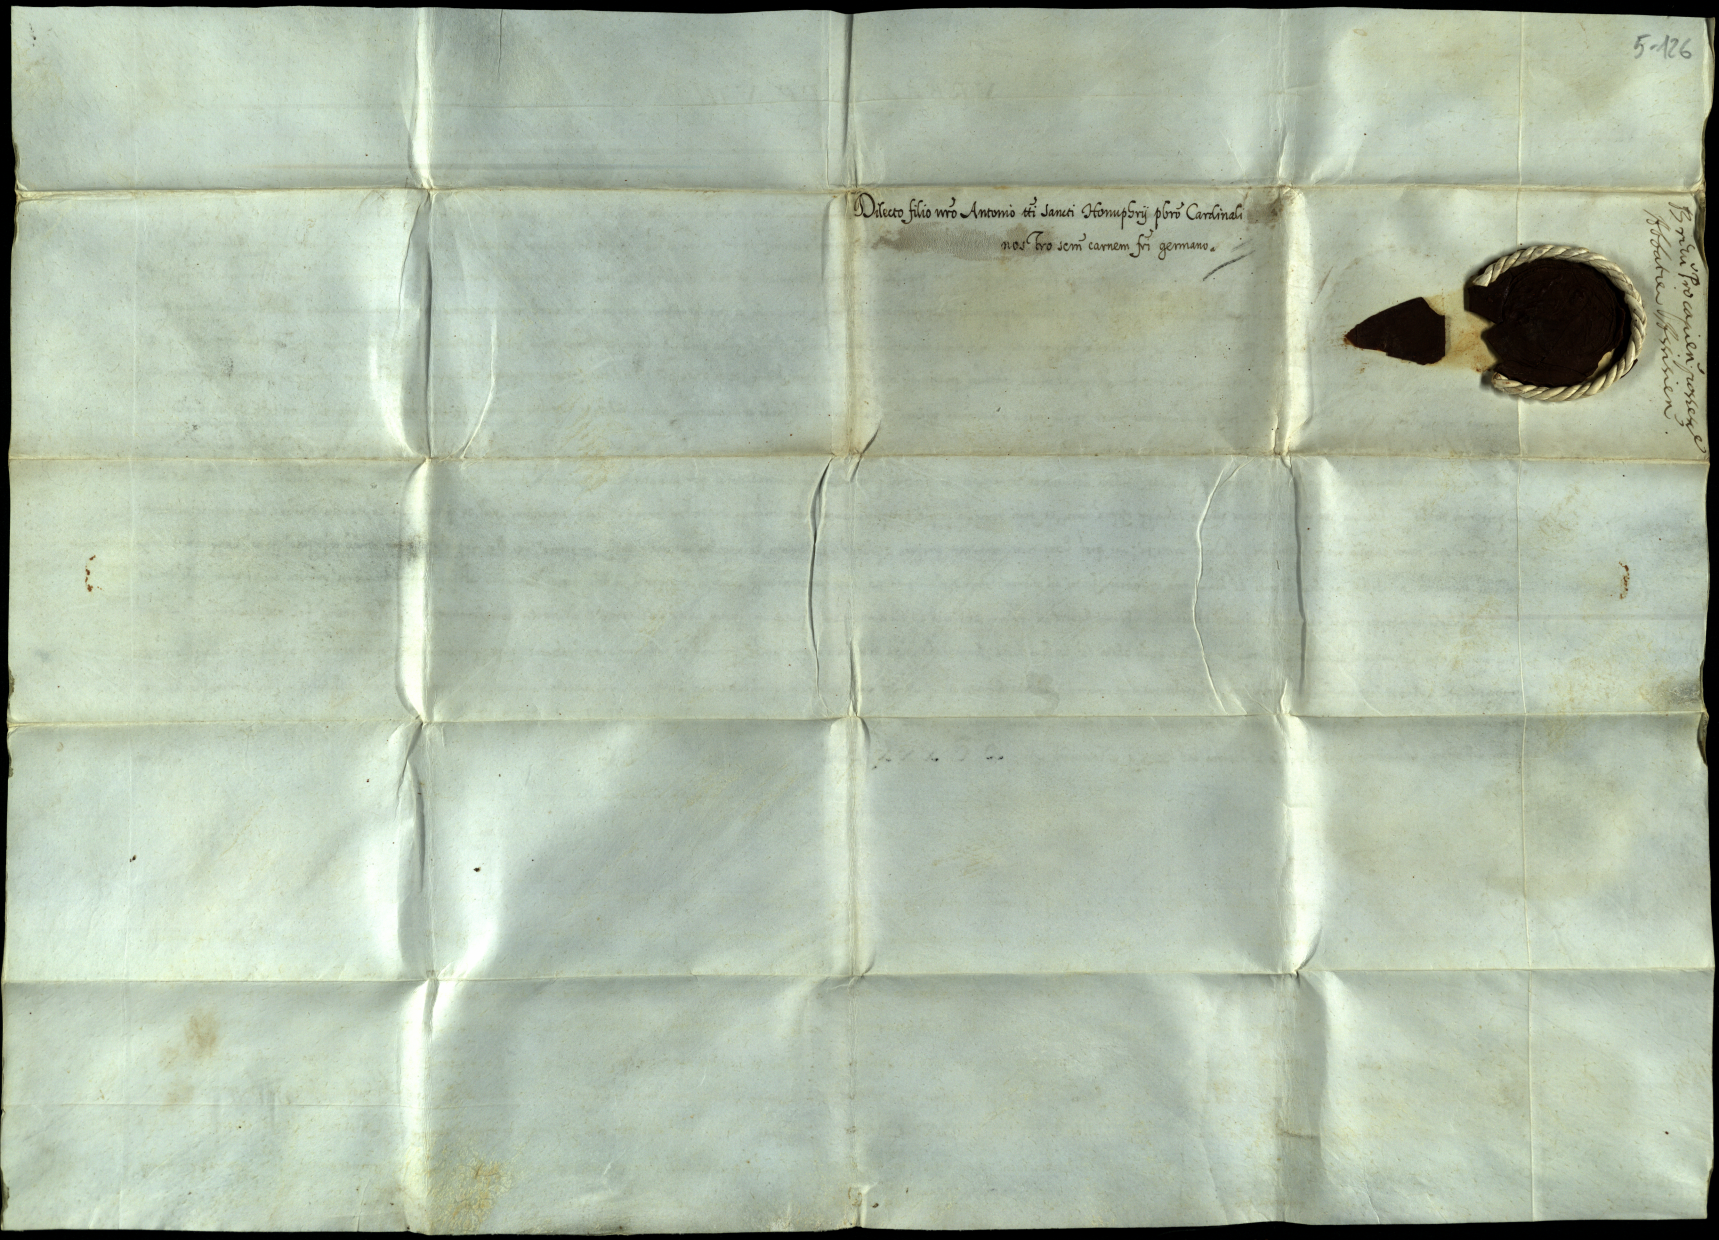 5-126
Dilecto filio nr̃o Antonio tt̃i sancti Honuphrij pbr̃o Cardinali
nostro sem̃ carnem fr̃i germano.
Abbatie Assisien.